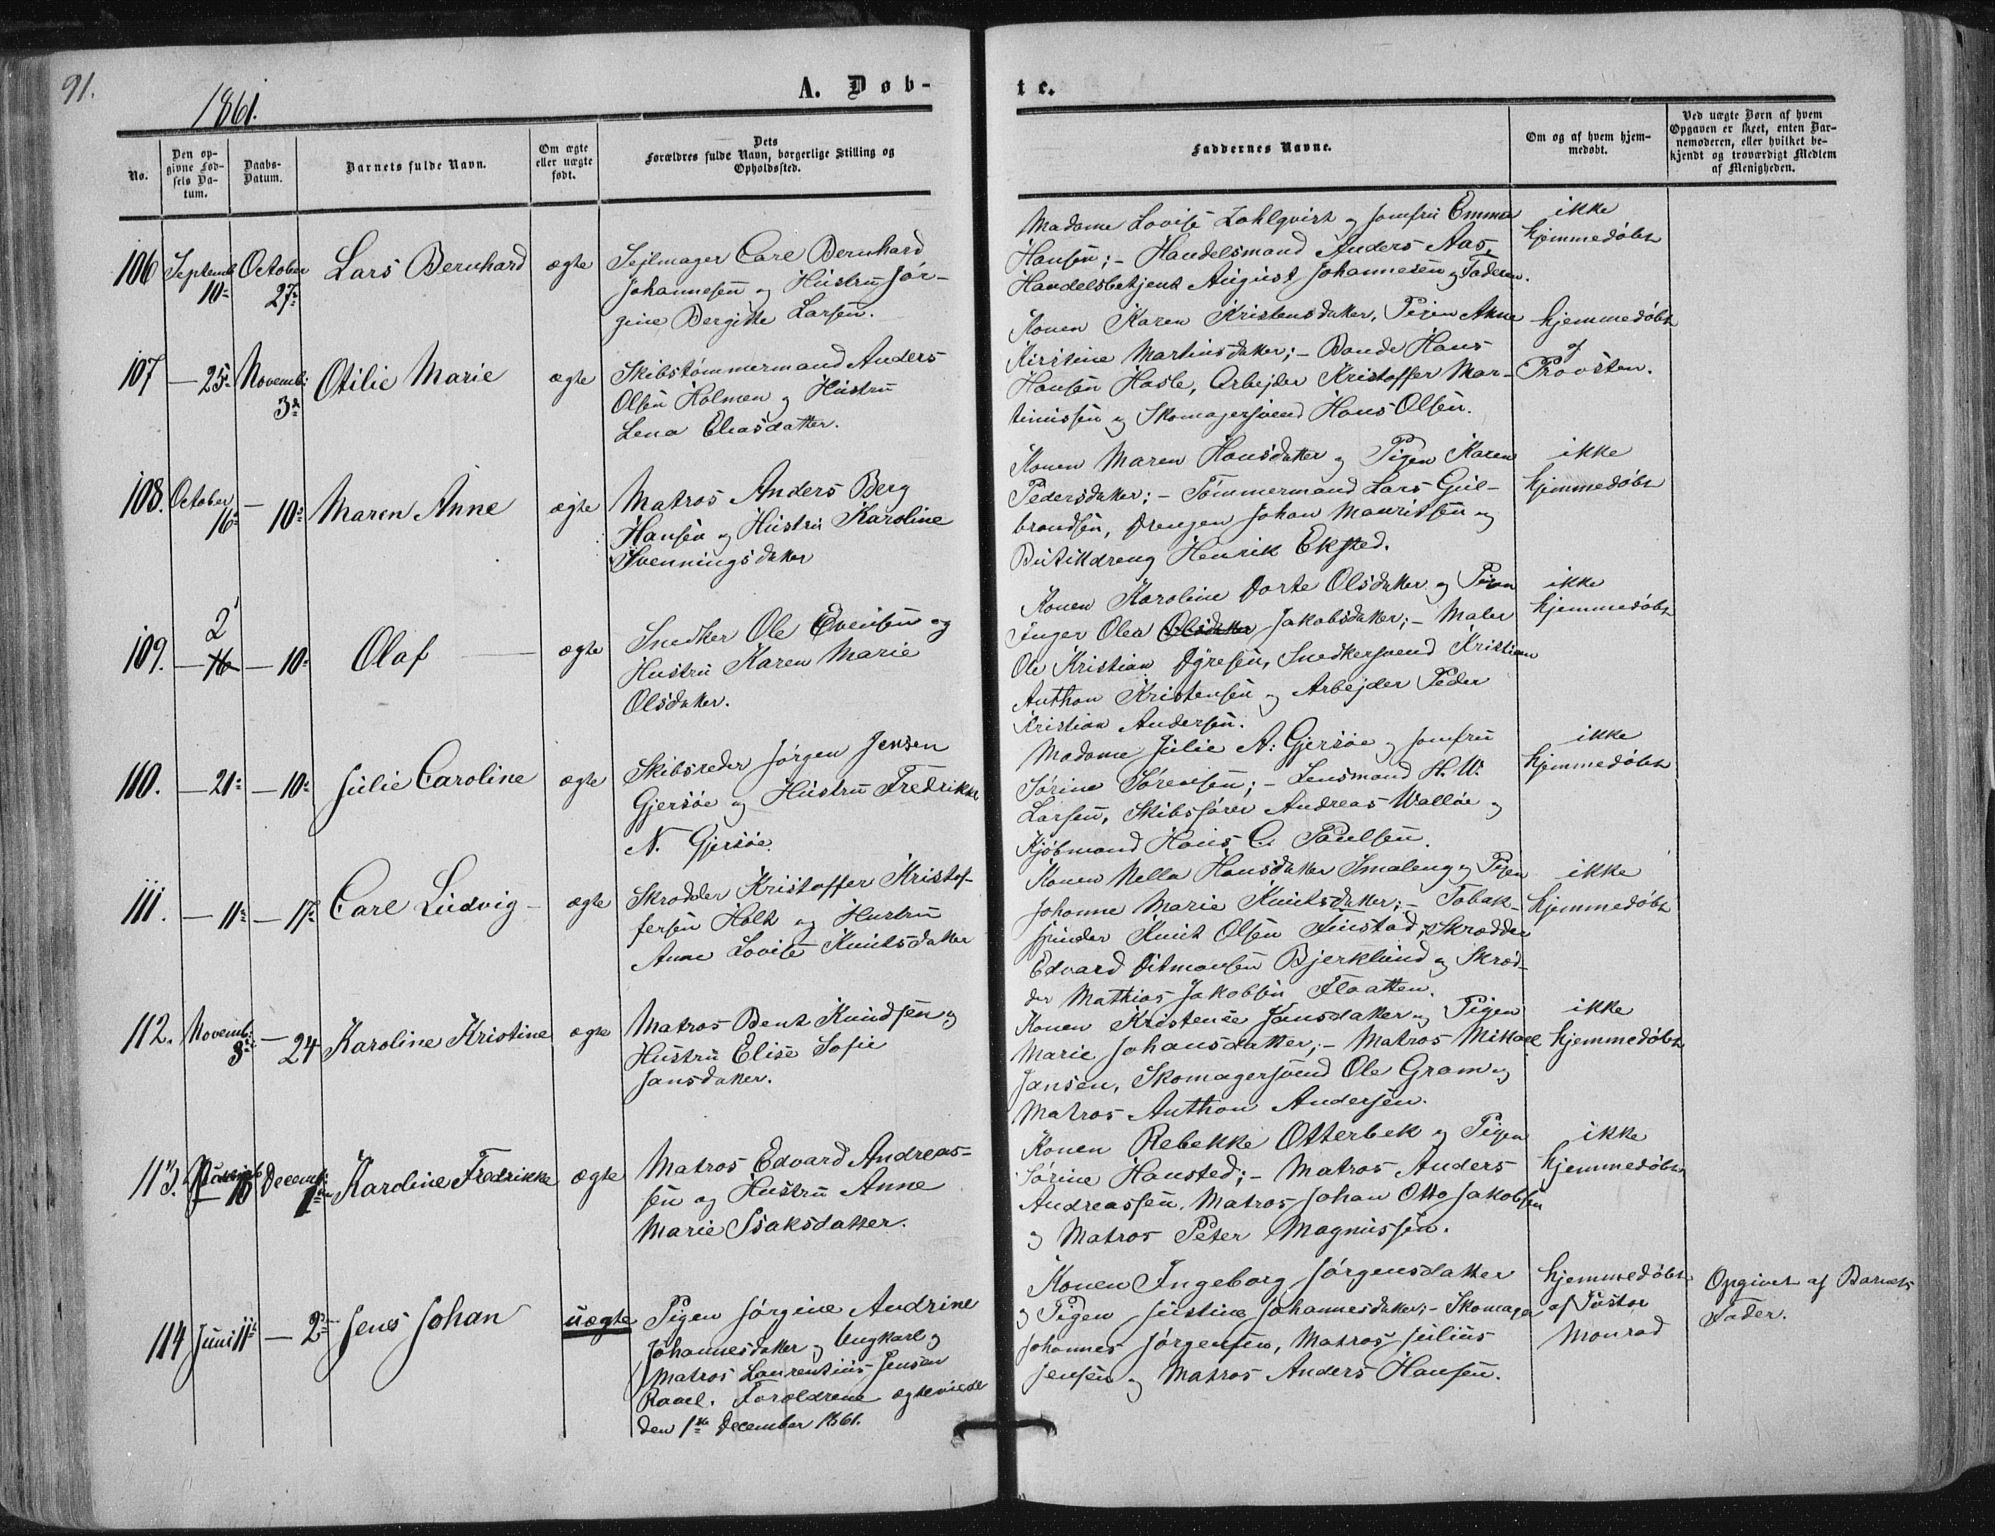 91.
1861.
A. Døb-
te.
No.
Den op-
givne Fød-
sels Da-
tum.
Daabs-
Datum.
Barnets fulde Navn.
Om ægte
eller uægte
født.
Dets
Forældres fulde Navn, borgerlige Stilling og
Opholdssted.
Faddernes Navne.
Om og af hvem hjem-
medøbt.
Ved uægte Børn af hvem
Opgaven er skeet, enten Bar-
nemoderen, eller hvilket be-
kjendt og troværdigt Medlem
af Menigheden.
106 Septemb. 10de October 27de Lars Bernhard ægte
Sejlmager Carl Bernhard
Johannesen og Hustru Jør-
gine Bergitte Larsen.
Madame Lovise Zahlqvist og Jomfru Emma
Hansen; - Handelsmand Anders Aas,
Handelsbetjent August Johannesen og Faderen.
ikke
hjemmedøbt
107 — 25de Novemb. 3die Otilie Marie ægte
Skibstømmermand Anders
Olsen Holmen og Hustru
Lena Eliasdatter.
Konen Karen Kristensdatter, Pigen Anne
Kirstine Martinsdatter; - Bonde Hans
Hansen Hasle, Arbejder Kristoffer Mar-
tinussen og Skomagersvend Hans Olsen.
hjemmedøbt
af
Provsten.
108. October 16de — 10de Maren Anne ægte
Matros Anders Berg
Hansen og Hustru Karoline
Svenningsdatter
Konen Maren Hansdatter og Pigen Karen
Pedersdatter; - Tømmermand Lars Gul-
brandsen, Drengen Johan Mauritsen og
Butikdreng Henrik Eksted.
ikke
hjemmedøbt
109. — 2 16 — 10de Olaf ægte
Snedker Ole Evensen og
Hustru Karen Marie
Olsdatter.
Konen Karoline Dorte Olsdatter og Pigen
Inger Olea Olsdatter Jakobsdatter; - Maler
Ole Kristian Dyresen, Snedkersvend Kristian
Anthon Kristensen og Arbejder Peder
Kristian Andersen.
ikke
hjemmedøbt
110. — 21de — 10de Julie Caroline ægte
Skibsreder Jørgen Jensen
Gjersøe og Hustru Fredrikke
N. Gjersøe.
Madame Julie A. Gjersøe og Jomfru
Sørine Sørensen; - Lensmand H. W.
Larsen, Skibsfører Andreas Walløe og
Kjøbmand Hans C. Paulsen.
ikke
hjemmedøbt
111. — 11de — 17de Carl Ludvig ægte
Skrædder Kristoffer Kristof-
fersen Holt og Hustru
Anne Lovise Knutsdatter
Konen Nella Hansdatter Smaleng og Pigen
Johanne Marie Knutsdatter; - Tobak-
spinder Knut Olsen Finstad, Skrædder
Edvard Ditmansen Bjerklund og Skræd-
der Mathias Jakobsen Flaatten.
ikke
hjemmedøbt
112. Novemb. 8de — 24 Karoline Kristine ægte
Matros Bent Knudsen og
Hustru Elise Sofie
Jansdatter.
Konen Kristense Jansdatter og Pigen
Marie Johansdatter; - Matros Mikael
Jansen, Skomagersvend Ole Gram og
Matros Anthon Andersen.
ikke
hjemmedøbt
113. Decemb. 1ste Karoline Fredrikke ægte
Matros Edvard Andreas-
sen og Hustru Anne
Marie Isaksdatter.
Konen Rebekke Otterbek og Pigen
Sørine Hansted; - Matros Anders
Andreassen, Matros Johan Otto Jakobsen
og Matros Peter Magnussen.
ikke
hjemmedøbt
114 Juni 11te — 2den Jens Johan uægte
Pigen Jørgine Andrine
Johannesdatter og Ungkarl og
Matros Laurentius Jensen
Raael. Forældrene ægteviede
den 1ste December 1861.
Konen Ingeborg Jørgensdatter
og Pigen Justine Johannesdatter; - Skomager
Johannes Jørgensen, Matros Julius
Jensen og Matros Anders Hansen.
hjemmedøbt
af Pastor
Monrad
Opgivet af Barnets
Fader.